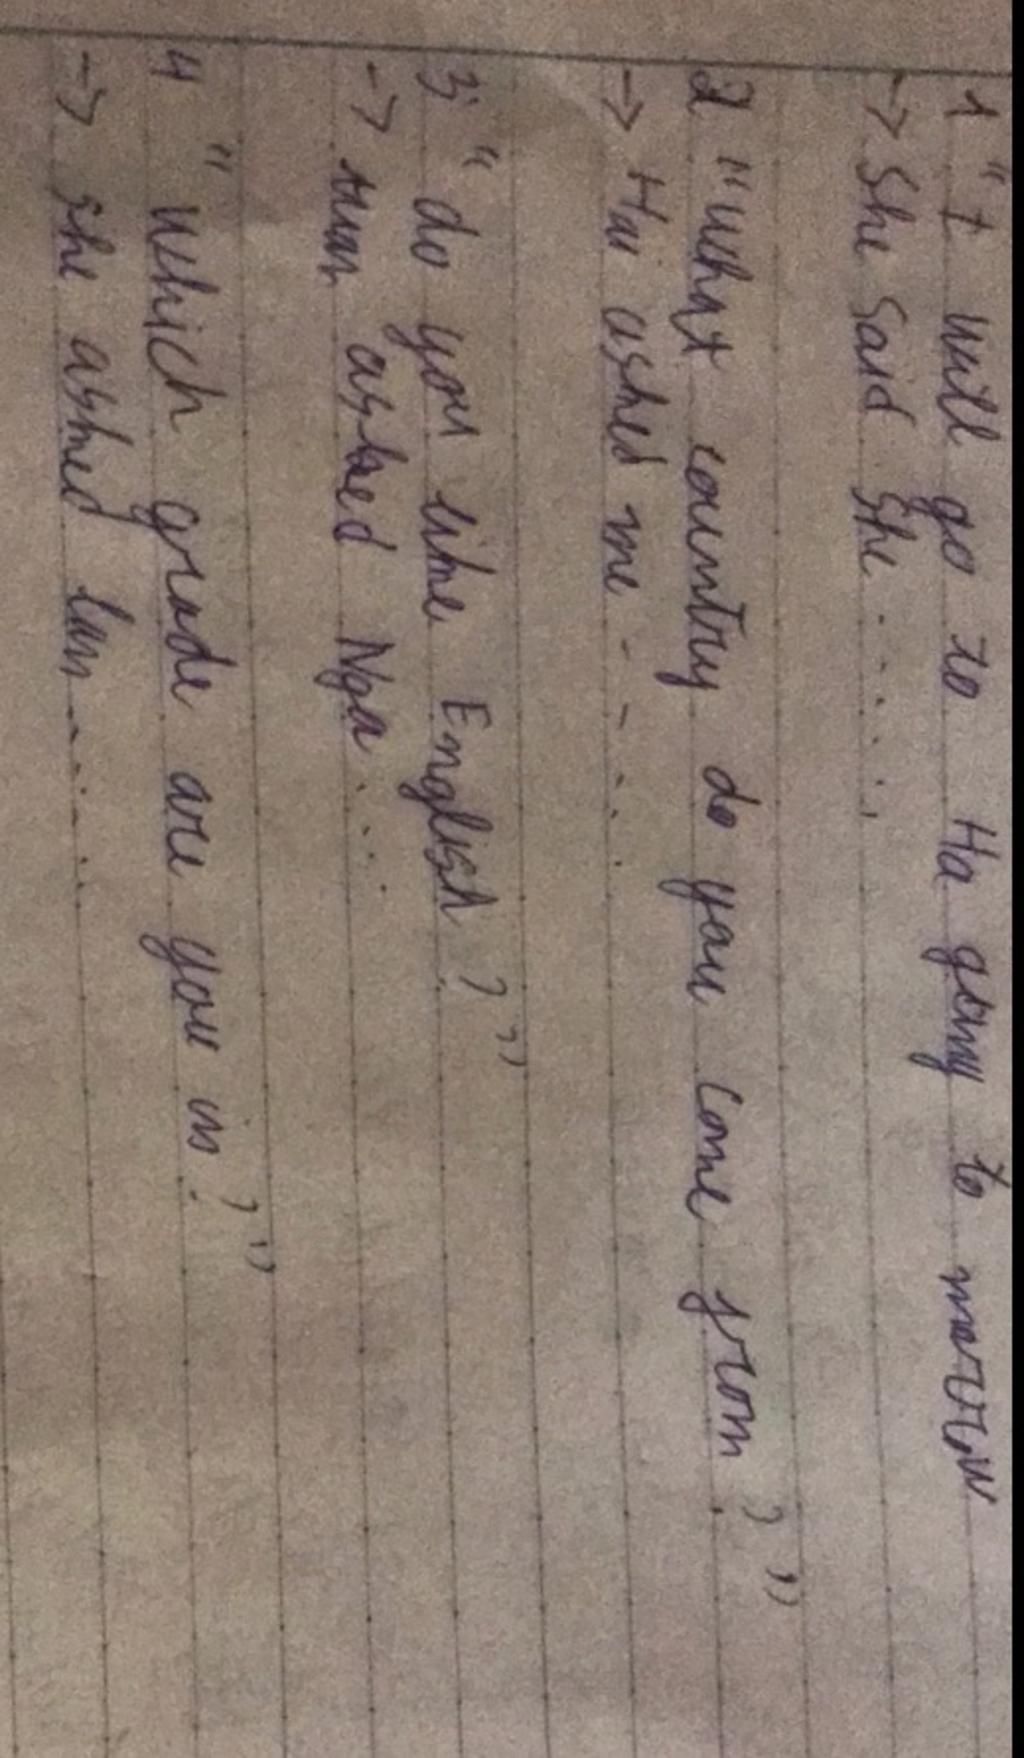 1 "I will go to Ha gcmg to morrow
-> She said She . . . . . .
2 "what country do you come from ? "
-> Hai asked me - - - . . .
3. " do you like English ? "
-> asked Nga . . . .
4 " which grade are you in ? "
-> she asked lan - - . . .